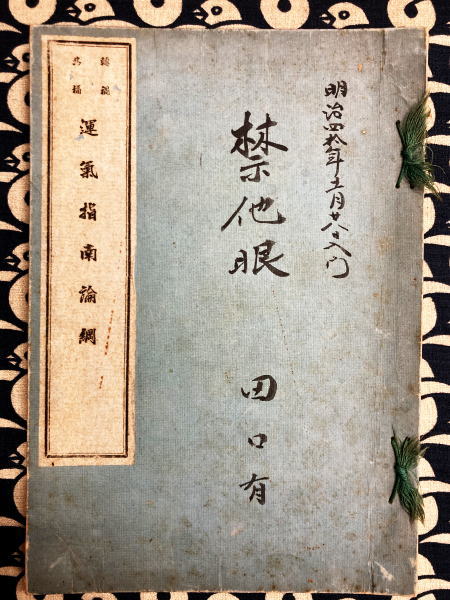 明治四拾年五月廿八日入門
禁他眼 田口有
運氣指南論綱